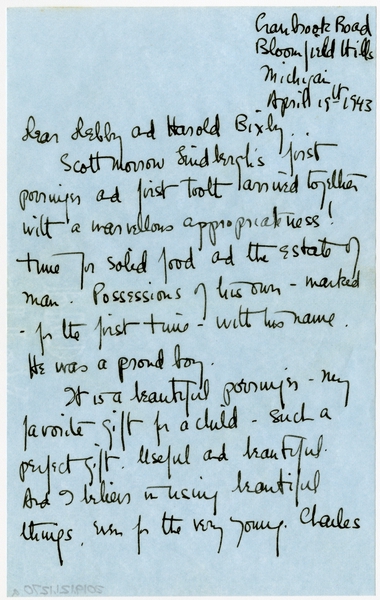 Cranbrook Road
Bloomfield Hills
Michigan
April 19th 1943
Dear Debby and Harold Bixby:
Scott Morrow Lindbergh's first
porringer and first tooth arrived together
with a marvellous appropriateness!
time for solid food and the estate of
man. Possessions of his own - marked
- for the first time - with his name.
He was a proud boy.
It is a beautiful porringer - my
favorite gift for a child - such a
perfect gift. Useful and beautiful.
And I believe in using beautiful
things, even for the very young. Charles